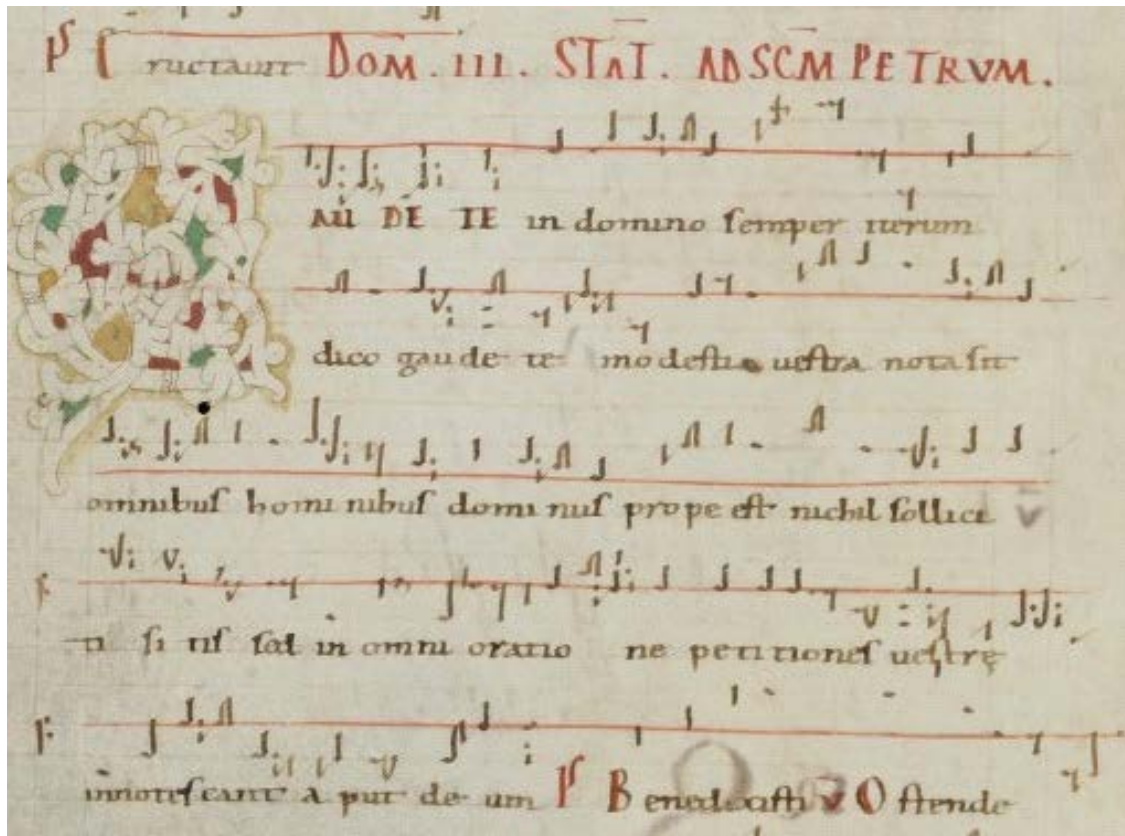 Ps Eructauit DOM̄ . III . STAT̄ . AD SCM̄ PETRVM .
GAU DE TE in domino semper iterum
dico gau de te modestia uestra nota sit
omnibus homi nibus domi nus prope est nichil sollici
ti si tis sed in omni oratio ne peti tiones uestrę
innotes cant a put de um Ps B enedixisti V O stende